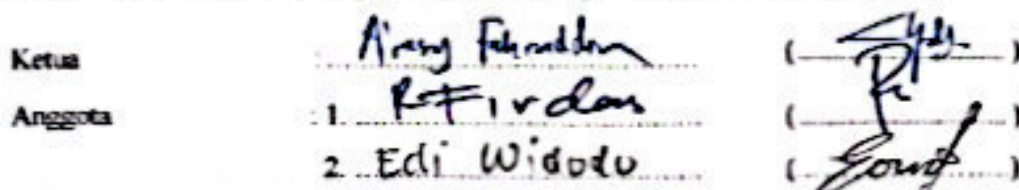 Ketua Fahruddin ( )
Anggota : 1 R Firdaus ( )
2 Edi Widodo ( )